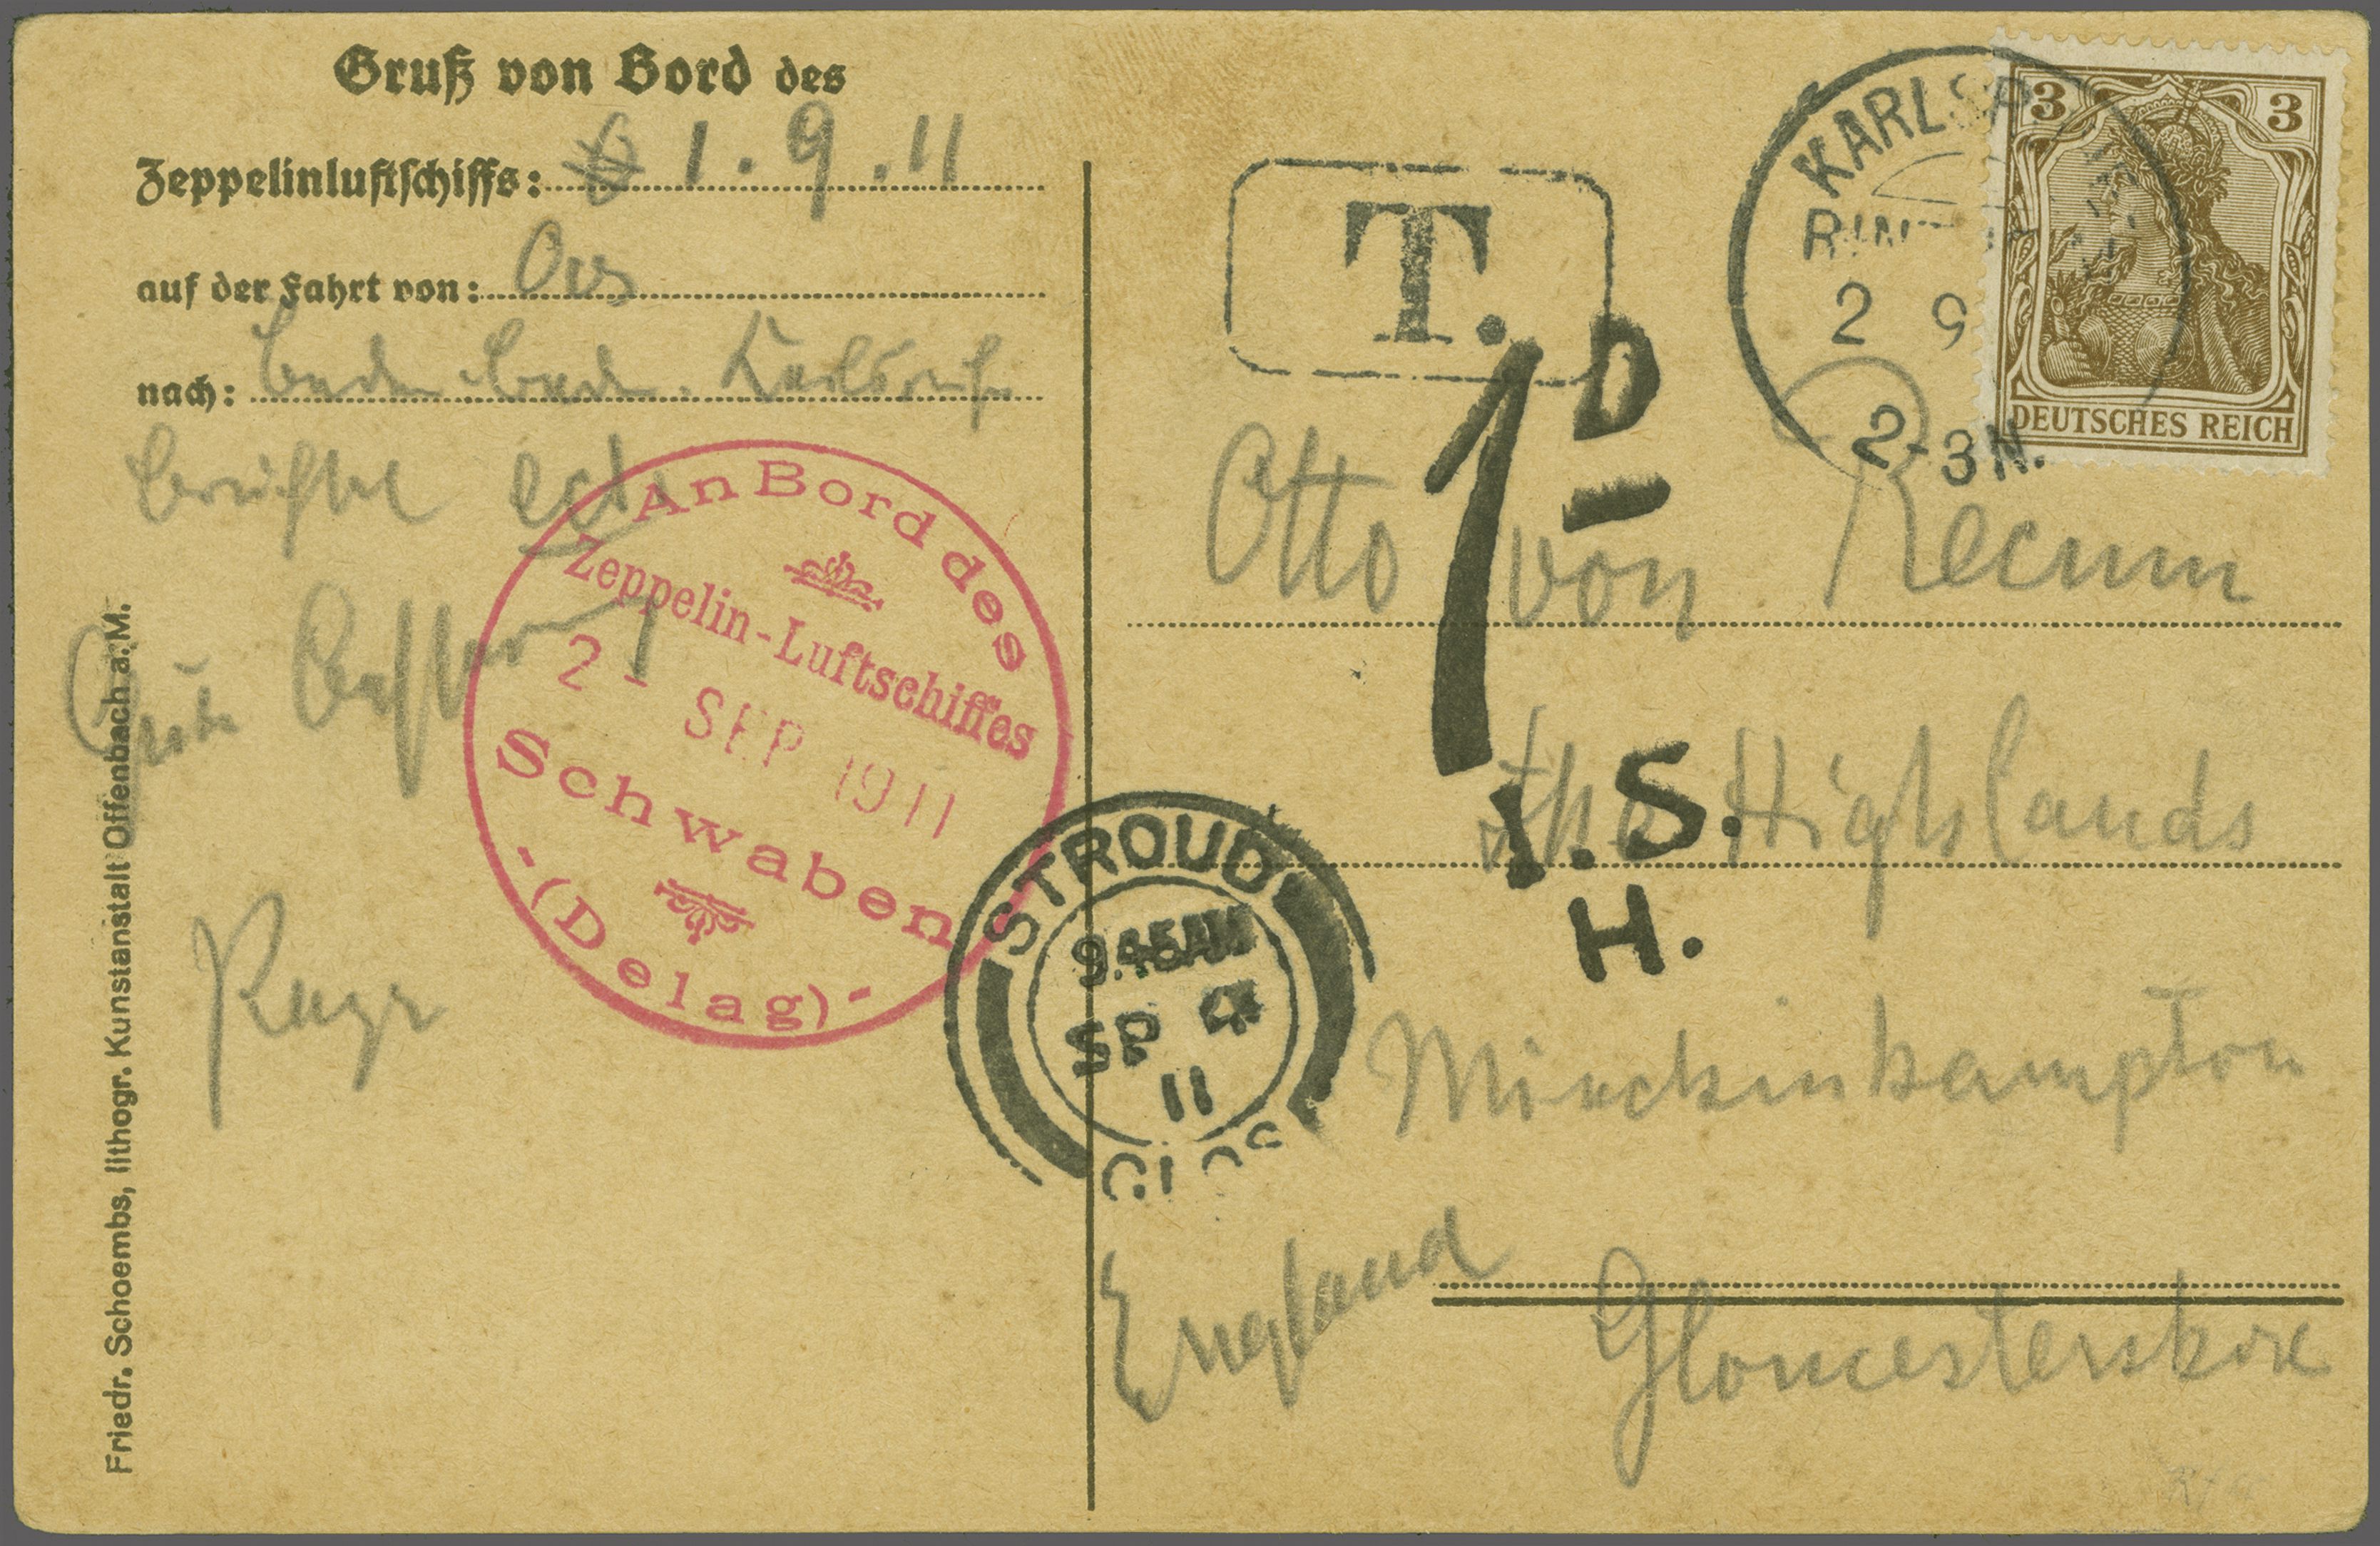 Gruß von Bord des
Zeppelinluftschiffs: 1.9.11
auf der Fahrt von: Oos
nach: Baden-Baden. Karlsruhe
Otto von Recum
The Highlands
Minchinhampton
England
Gloucestershire
An Bord des
Zeppelin-Luftschiffes
2 - SEP 1911
Schwaben
(Delag)
T.
1D
I.S.
H.
STROUD
9.45AM
SP 4
11
2 9
2-3N.
3 3
DEUTSCHES REICH
Friedr. Schoembs, lithogr. Kunstanstalt Offenbach a.M.